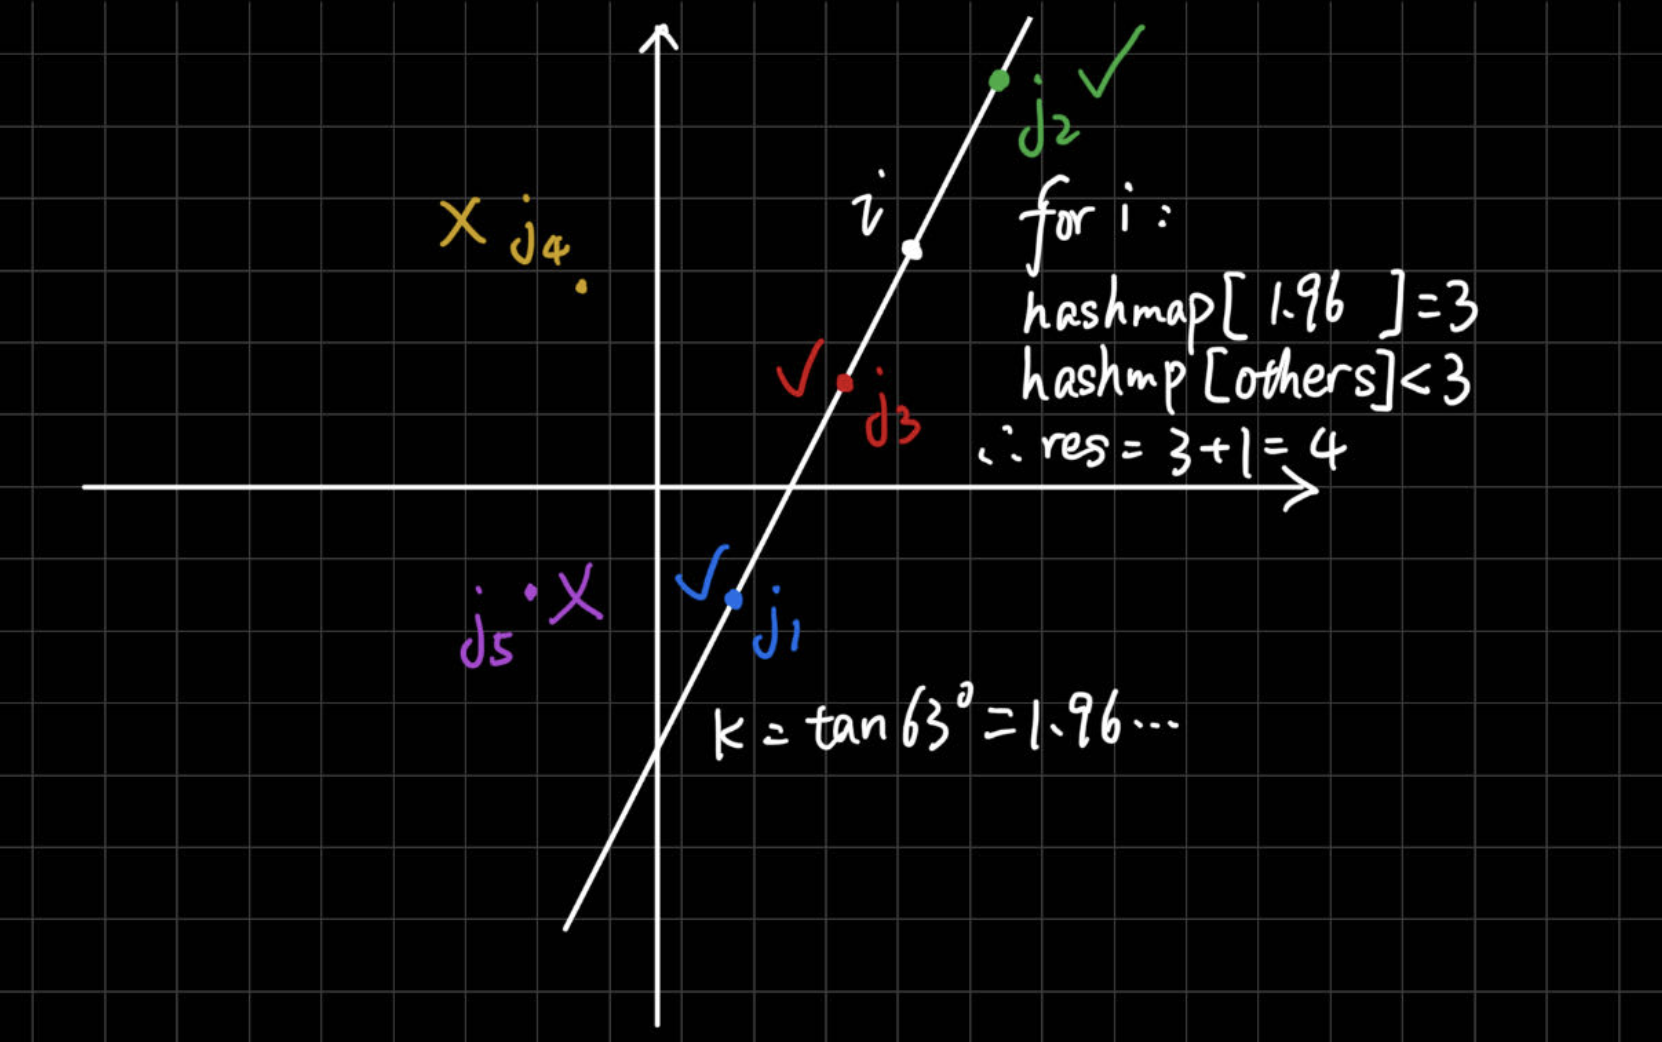 j2 ✓
i
for i :
X j4
hashmap[ 1.96 ]=3
✓ j3
hashmp [others]<3
∴ res = 3+1= 4
j5 X
✓ j1
K = tan 63° = 1.96...